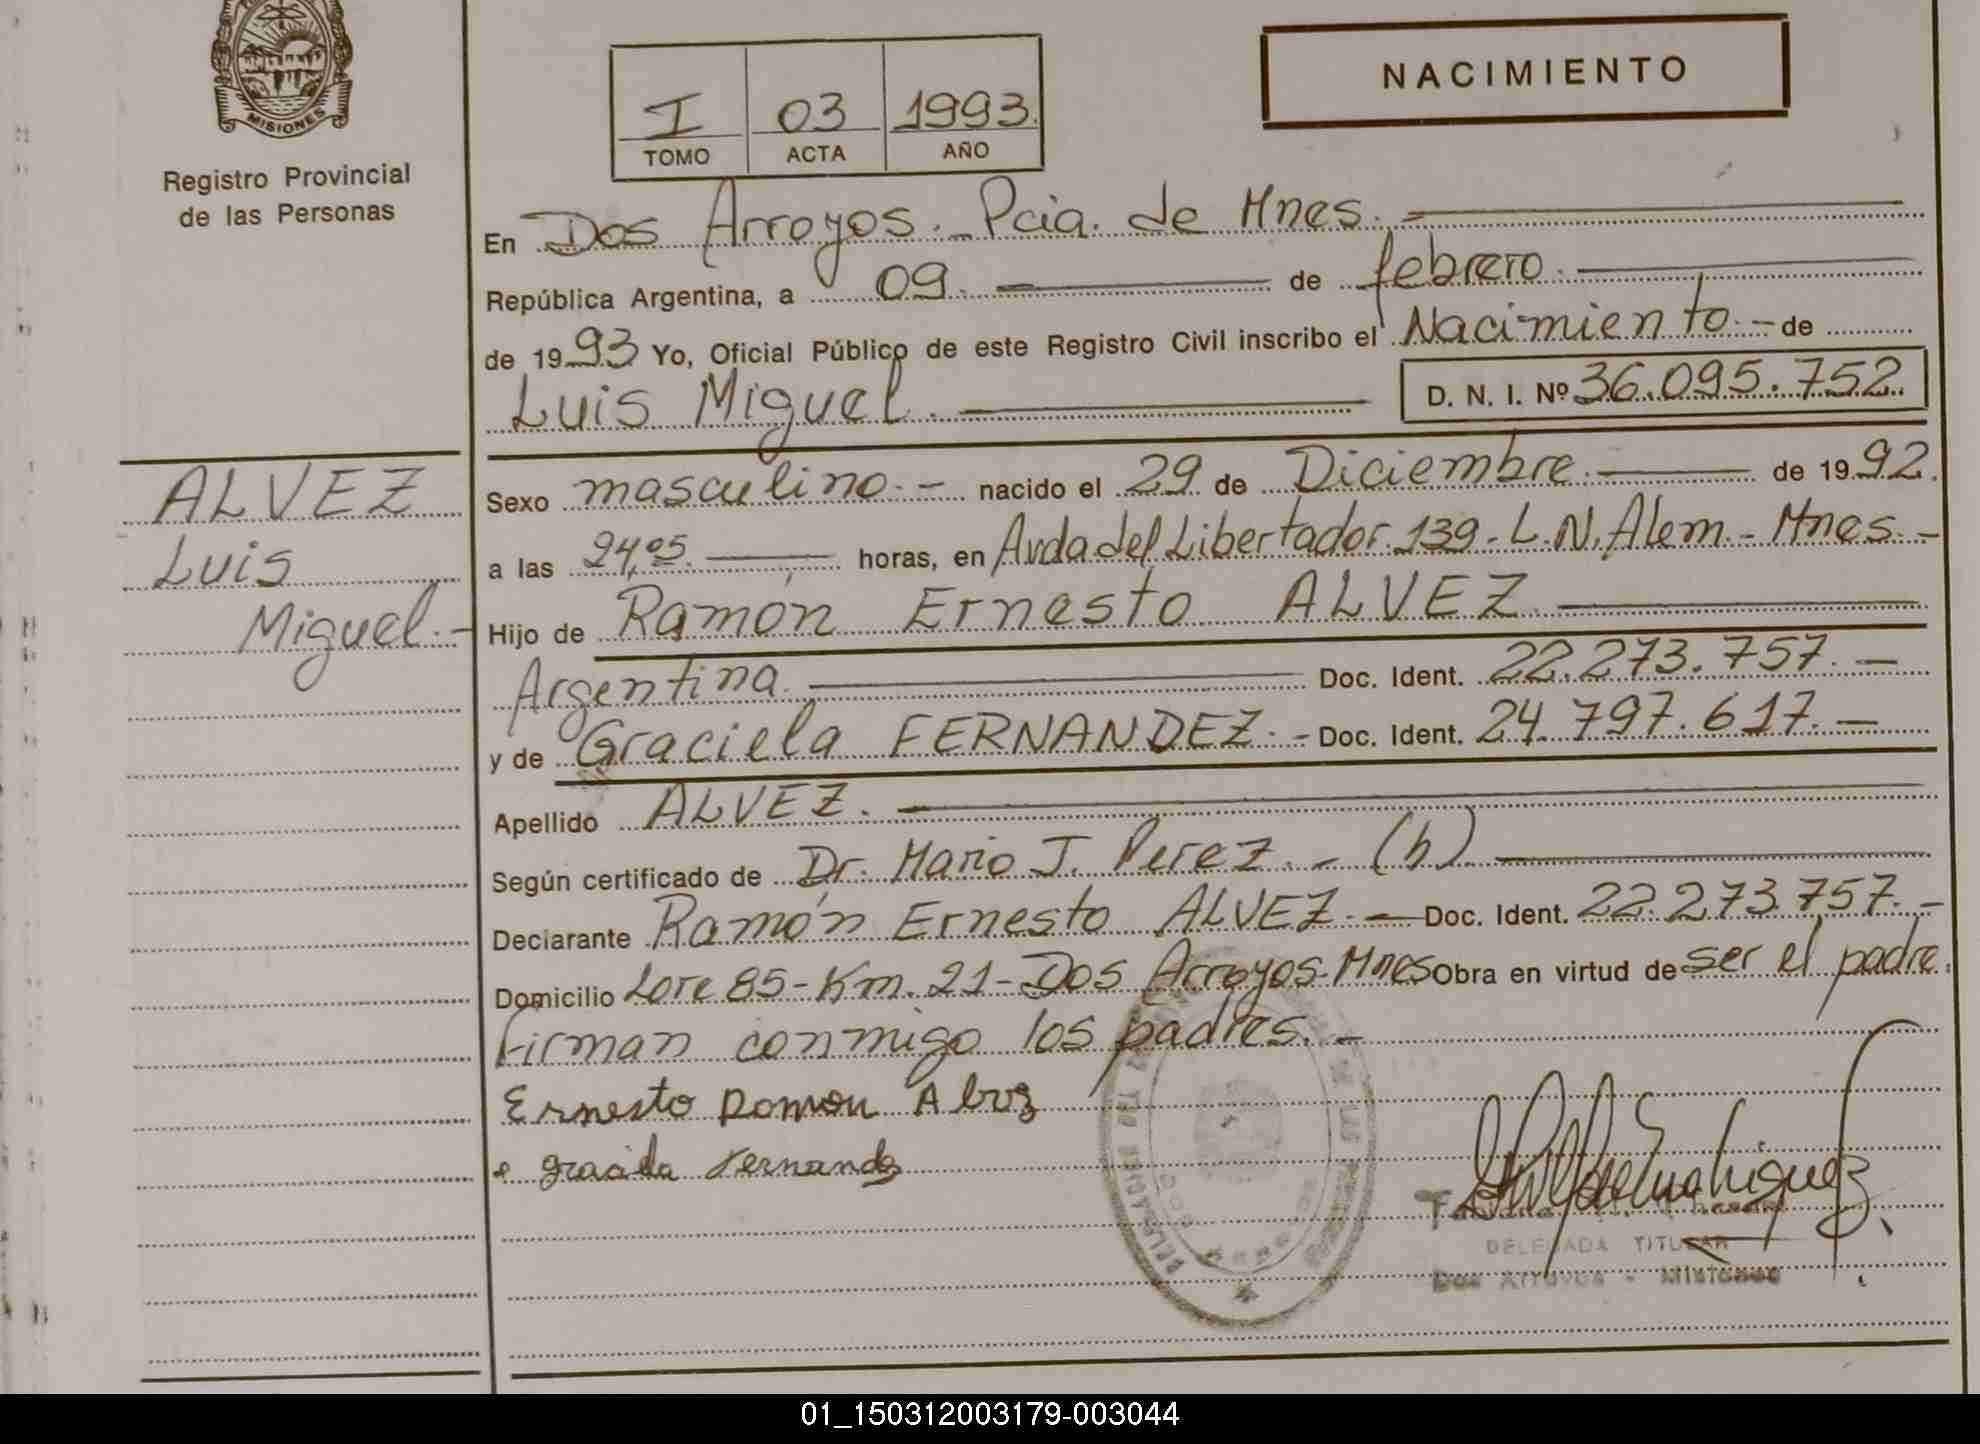 MISIONES
Registro Provincial
de las Personas
I 03 1993.
TOMO ACTA AÑO
NACIMIENTO
En Dos Arroyos.- Pcia. de Mnes.-
República Argentina, a 09. de febrero.
de 1993 Yo, Oficial Público de este Registro Civil inscribo el Nacimiento.- de
Luis Miguel. D. N. I. Nº 36.095.752.
ALVEZ
Luis
Miguel.-
Sexo masculino.- nacido el 29 de Diciembre. de 1992.
a las 24,05. horas, en Avda del Libertador 139.- L.N. Alem.- Mnes.-
Hijo de Ramón Ernesto ALVEZ.
Argentina. Doc. Ident. 22.273.757.-
y de Graciela FERNANDEZ.- Doc. Ident. 24.797.617.-
Apellido ALVEZ.
Según certificado de Dr. Mario J. Perez.- (h)
Declarante Ramón Ernesto ALVEZ.- Doc. Ident. 22.273.757.-
Domicilio Lote 85-Km. 21-Dos Arroyos-Mnes Obra en virtud de ser el padre.
Firman conmigo los padres.-
Ernesto Ramon
graciela Fernandez
DELEGADA TITULAR
Dos Arroyos - Misiones
01_150312003179-003044